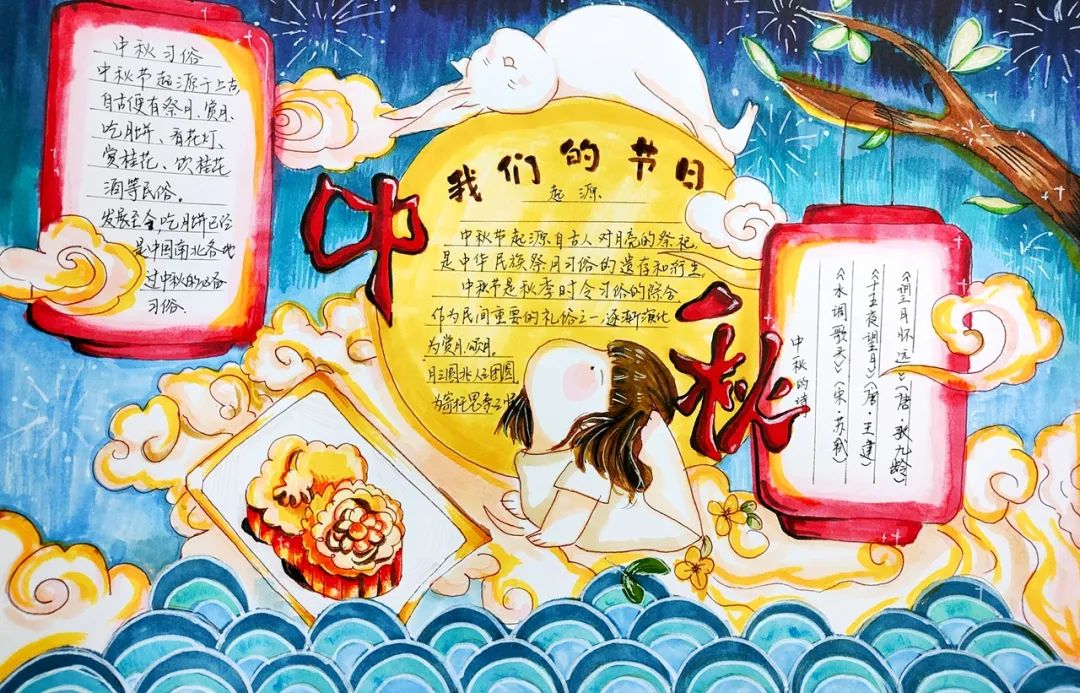 中秋习俗
中秋节起源于上古,
自古便有祭月、赏月、
吃月饼、看花灯、
赏桂花、饮桂花
酒等民俗。
发展至今,吃月饼已经
是中国南北各地
过中秋的必备
习俗.
中秋
我们的节日
起源
中秋节起源自古人对月亮的祭祀,
是中华民族祭月习俗的遗存和衍生.
中秋节是秋季时令习俗的综合
作为民间重要的礼俗之一,逐渐演化
为赏月、颂月.
月之圆兆人之团圆
为寄托思
中秋的诗
《望月怀远》(唐·张九龄)
《十五夜望月》(唐·王建)
《水调歌头》(宋·苏轼)